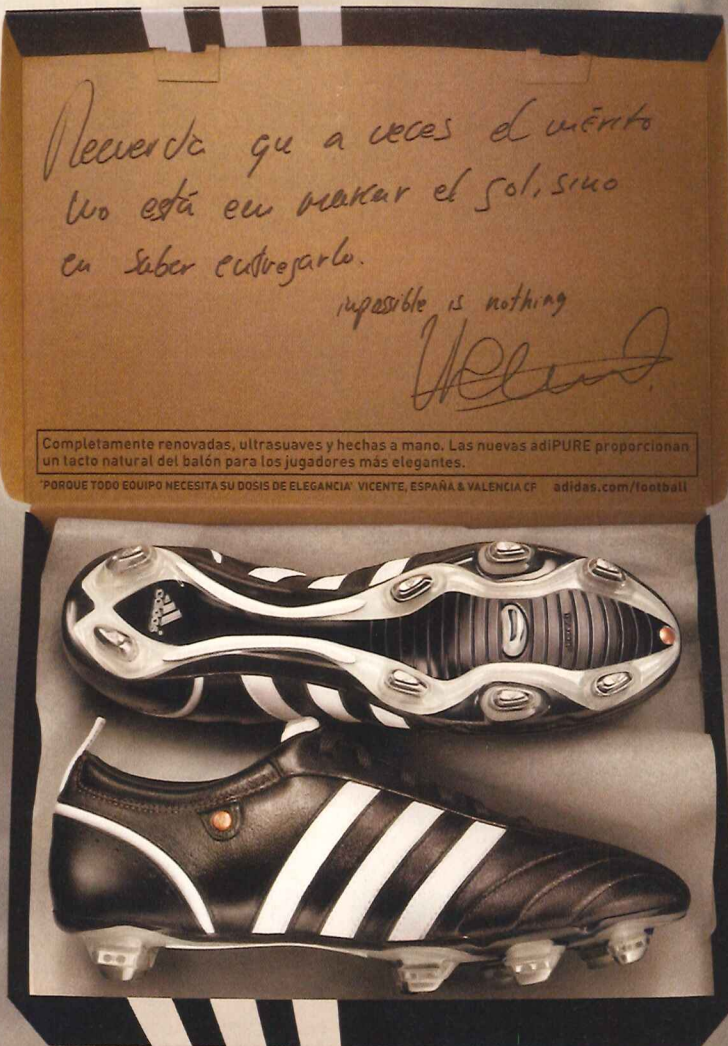 Recuerda que a veces el mérito
no está en marcar el gol, sino
en saber entregarlo.
impossible is nothing
Completamente renovadas, ultrasuaves y hechas a mano. Las nuevas adiPURE proporcionan
un tacto natural del balón para los jugadores más elegantes.
"PORQUE TODO EQUIPO NECESITA SU DOSIS DE ELEGANCIA" VICENTE, ESPAÑA & VALENCIA CF adidas.com/football
adidas